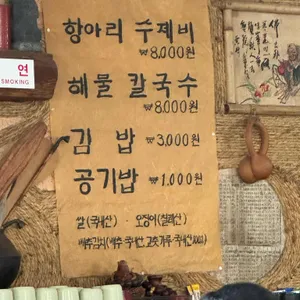 항아리 수제비
₩8,000원
해물 칼국수
₩8,000원
김 밥 ₩3,000원
공기밥 ₩1,000원
쌀(국내산) · 오징어(칠레산)
배추김치(배추·국내산, 고춧가루·국내산100%)
연
SMOKING